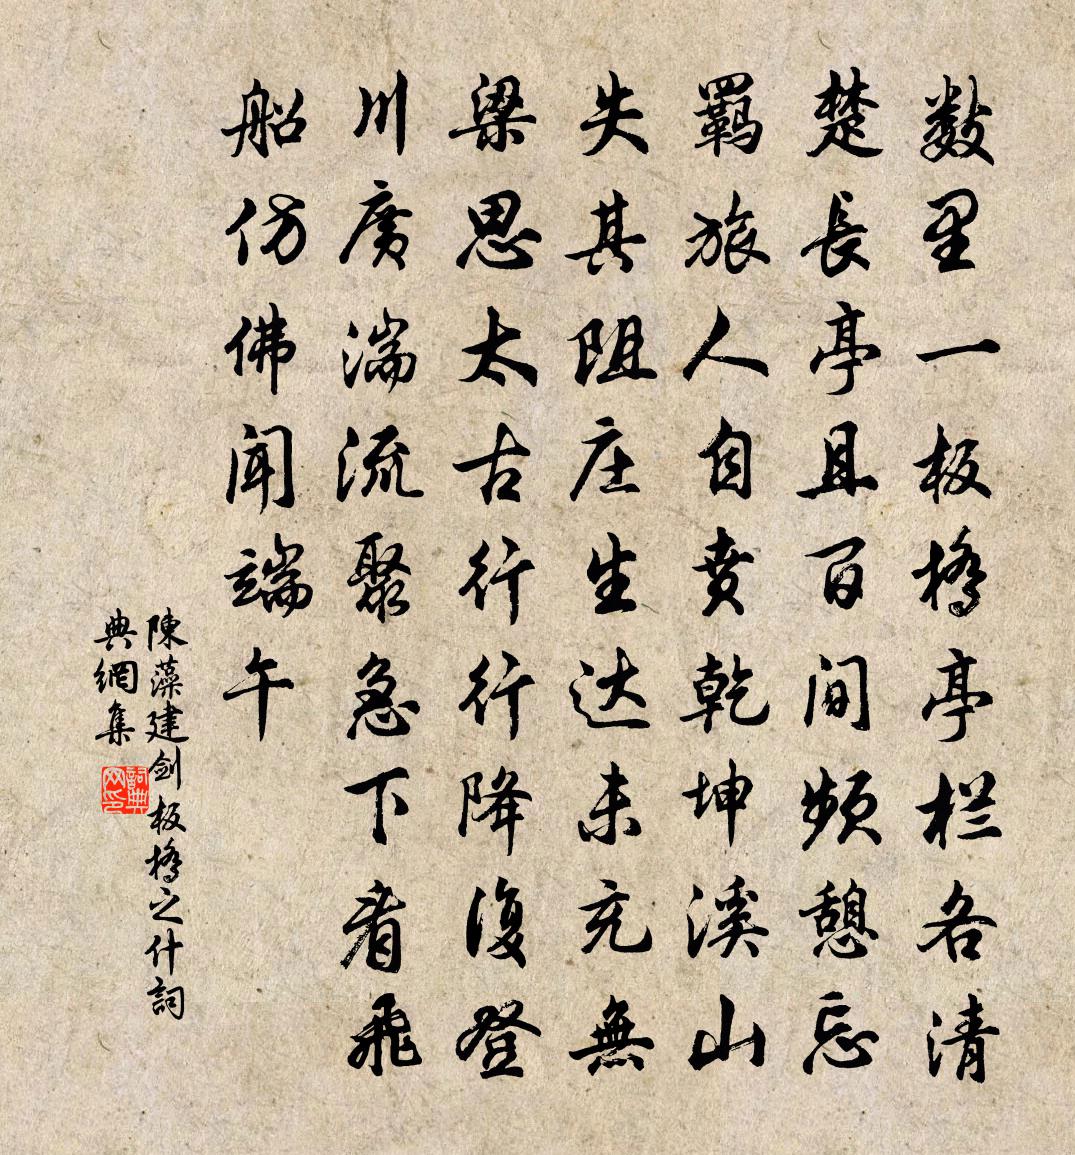 數里一板橋亭栏各清
楚長亭且百间頻憩忘
羈旅人自賁乾坤溪山
失其阻庄生达未充無
梁思太古行行降復登
川廣湍流聚急下看飛
船仿佛闻端午
陳藻建剑板橋之什詞
典網集
詞典
网印